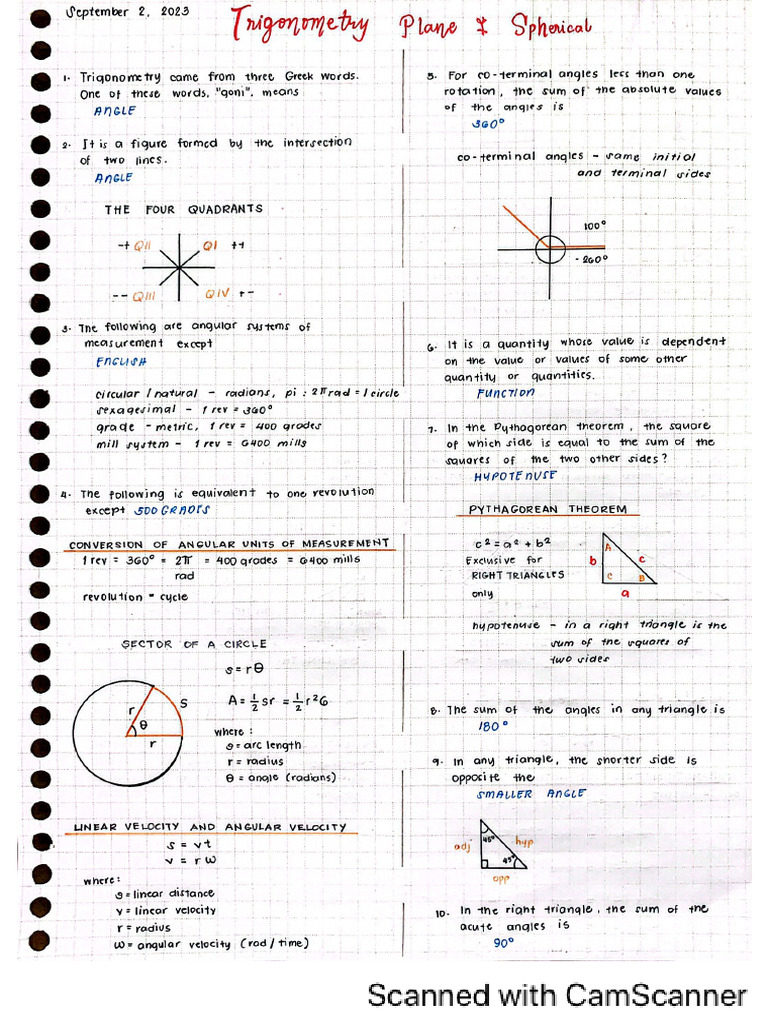 September 2, 2023
Trigonometry Plane & Spherical
1. Trigonometry came from three Greek words.
One of these words, "goni", means
ANGLE
2. It is a figure formed by the intersection
of two lines.
ANGLE
THE FOUR QUADRANTS
-+ QII QI ++
-- QIII QIV +-
3. The following are angular systems of
measurement except
ENGLISH
circular / natural - radians, pi : 2π rad = 1 circle
sexagesimal - 1 rev = 360°
grade - metric, 1 rev = 400 grades
mill system - 1 rev = 6400 mills
4. The following is equivalent to one revolution
except 500 GRADES
CONVERSION OF ANGULAR UNITS OF MEASUREMENT
1 rev = 360° = 2π = 400 grades = 6400 mills
rad
revolution = cycle
SECTOR OF A CIRCLE
s = rθ
A = 1/2 sr = 1/2 r²θ
where :
s = arc length
r = radius
θ = angle (radians)
r
s
θ
r
LINEAR VELOCITY AND ANGULAR VELOCITY
s = vt
v = rω
where :
s = linear distance
v = linear velocity
r = radius
ω = angular velocity (rad / time)
5. For co-terminal angles less than one
rotation, the sum of the absolute values
of the angles is
360°
co-terminal angles - same initial
and terminal sides
100°
-260°
6. It is a quantity whose value is dependent
on the value or values of some other
quantity or quantities.
FUNCTION
7. In the Pythagorean theorem, the square
of which side is equal to the sum of the
squares of the two other sides?
HYPOTENUSE
PYTHAGOREAN THEOREM
c² = a² + b²
Exclusive for
RIGHT TRIANGLES
only
A
b
c
C
B
a
hypotenuse - in a right triangle is the
sum of the squares of
two sides
8. The sum of the angles in any triangle is
180°
9. In any triangle, the shorter side is
opposite the
SMALLER ANGLE
adj
45°
hyp
45°
opp
10. In the right triangle, the sum of the
acute angles is
90°
Scanned with CamScanner